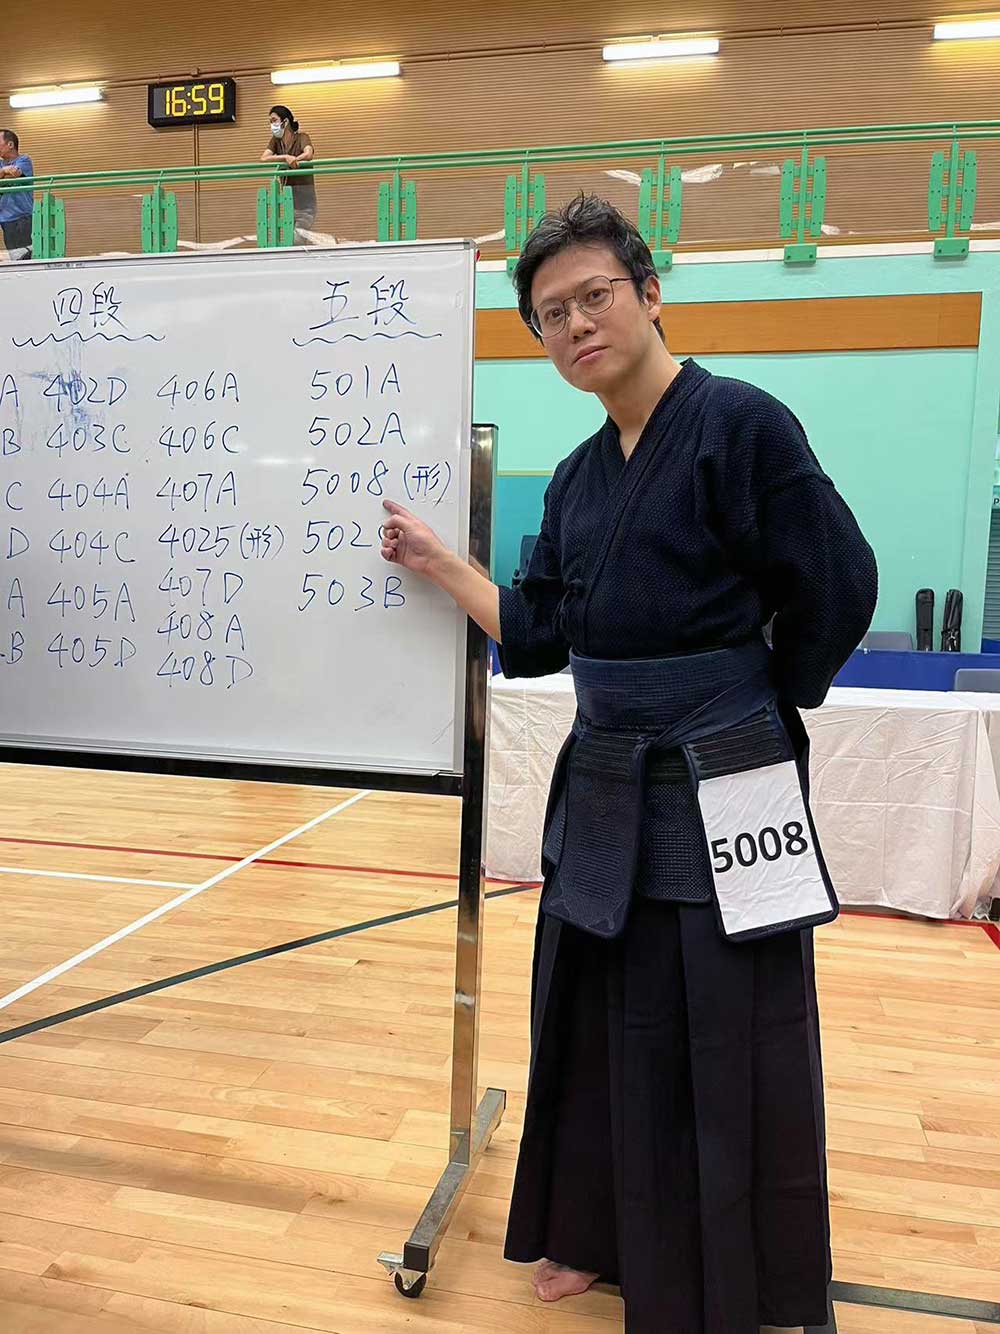 16:59
四段
A 402D 406A
B 403C 406C
C 404A 407A
D 404C 4025(形)
A 405A 407D
B 405D 408A
408D
五段
501A
502A
5008(形)
502
503B
5008